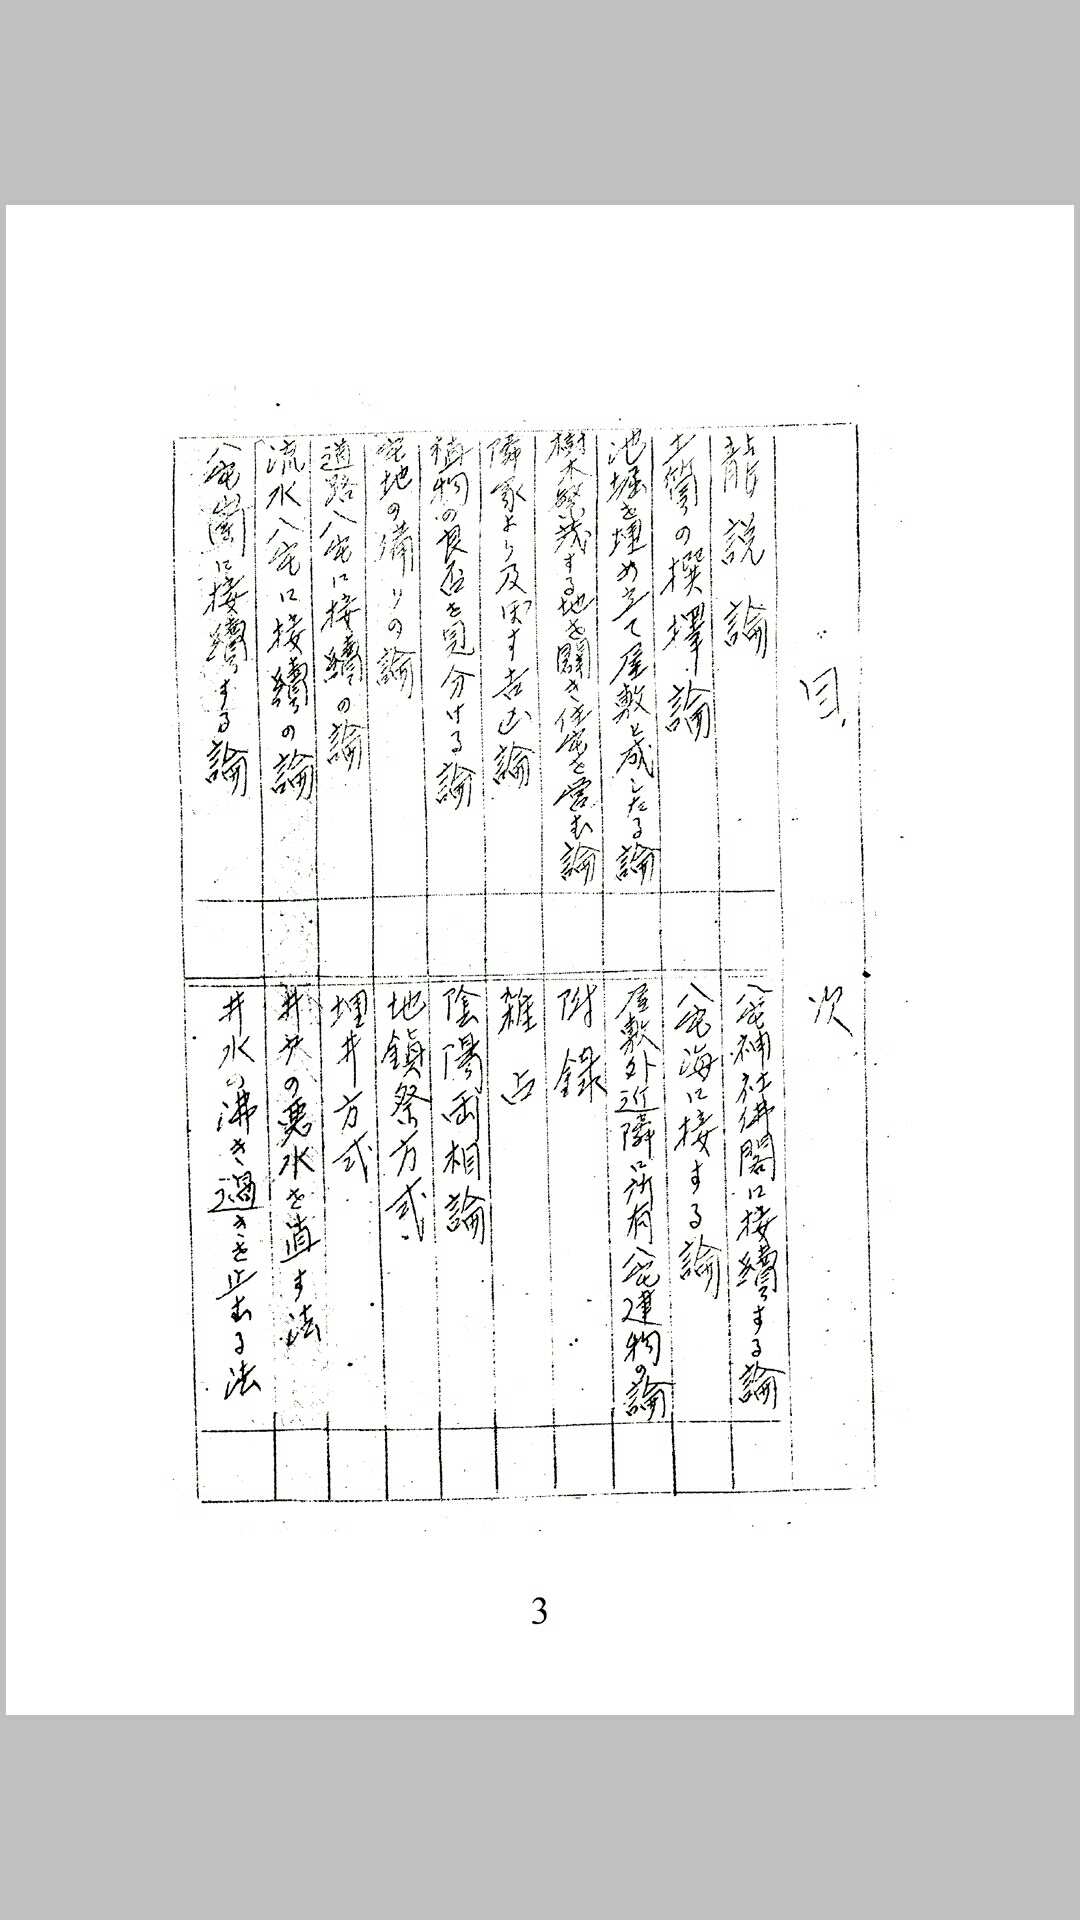 目次
龍説論
土質の撰擇論
池堀を埋め立て屋敷と成したる論
樹木繁茂する地を開き住宅を営む論
隣家より及ぼす吉凶論
植物の良否を見分ける論
宅地の備りの論
道路人宅に接續の論
流水人宅に接續の論
人宅に接續する論
人宅神社佛閣に接續する論
人宅海に接する論
屋敷外近隣に所有人宅建物の論
附録
雑占
陰陽両相論
地鎮祭方式
埋井方式
井戸の悪水を直す法
井水の沸き過きを止むる法
3